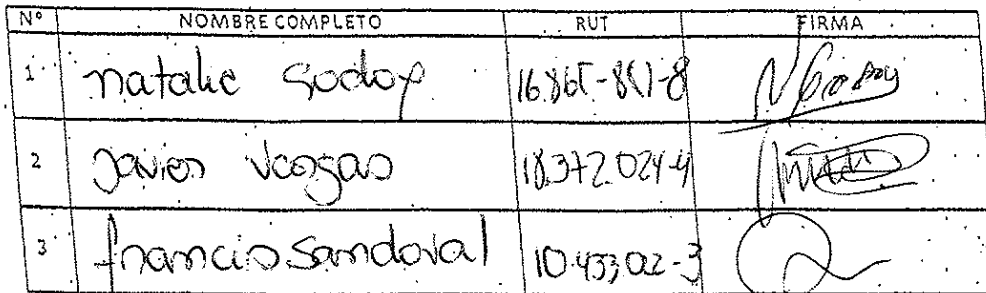 Nº NOMBRE COMPLETO RUT FIRMA
1 natalie Godoy
2 Javier Vargas 18.372.024-4
3 francis Sandoval